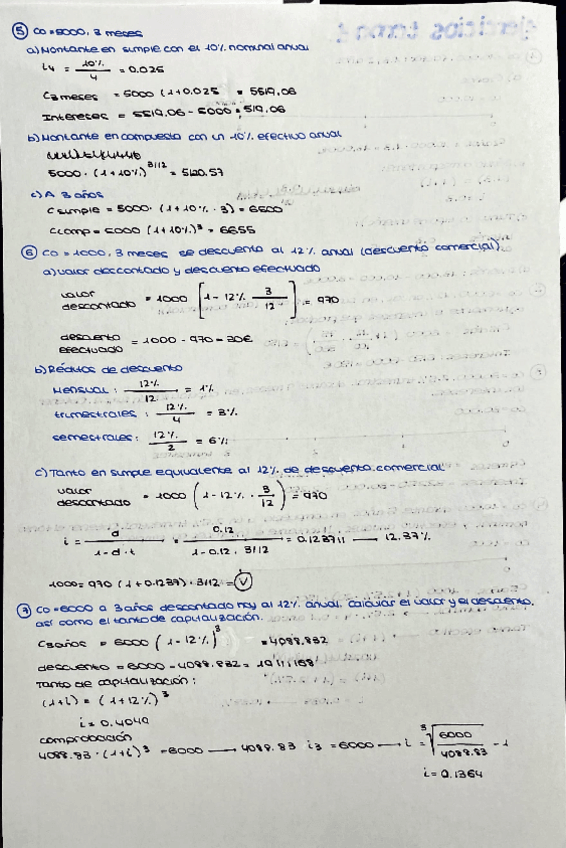 ⑤ C0 = 5000, 3 meses
a) Montante en simple con el 10% nominal anual
i4 = 10% / 4 = 0.025
C3 meses = 5000 (1+0.025 = 5519,06
Intereses = 5519,06 - 5000 = 519,06
b) Montante en compuesta con un 10% efectivo anual
5000 · (1+10%)^3/12 = 5120.57
c) A 3 años
C simple = 5000 · (1+10% · 3) = 6500
C comp = 5000 (1+10%)^3 = 6655
⑥ C0 = 1000, 3 meses se descuento al 12% anual (descuento comercial)
a) valor descontado y descuento efectuado
valor descontado = 1000 [1 - 12% 3/12] = 970
descuento efectuado = 1000 - 970 = 30€
b) Réditos de descuento
Mensual: 12% / 12 = 1%
trimestrales: 12% / 4 = 3%
semestrales: 12% / 2 = 6%
c) Tanto en simple equivalente al 12% de descuento comercial
valor descontado = 1000 (1 - 12% · 3/12) = 970
i = d / 1-d·t = 0.12 / 1-0.12 · 3/12 = 0.123711 → 12.37%
1000 = 970 (1+0.1237) · 3/12 = Ⓥ
⑦ C0 = 6000 a 3 años descontado hoy al 12% anual. Calcular el valor y el descuento,
así como el tanto de capitalización.
C3años = 6000 (1 - 12%)^3 = 4088.832
descuento = 6000 - 4088.832 = 1911,168
Tanto de capitalización:
(1+i) = (1+12%)^3
i = 0.4049
comprobación
4088.83 · (1+i)^3 = 6000 → 4088.83 i3 = 6000 → i = ³√6000/4088.83 - 1
i = 0.1364